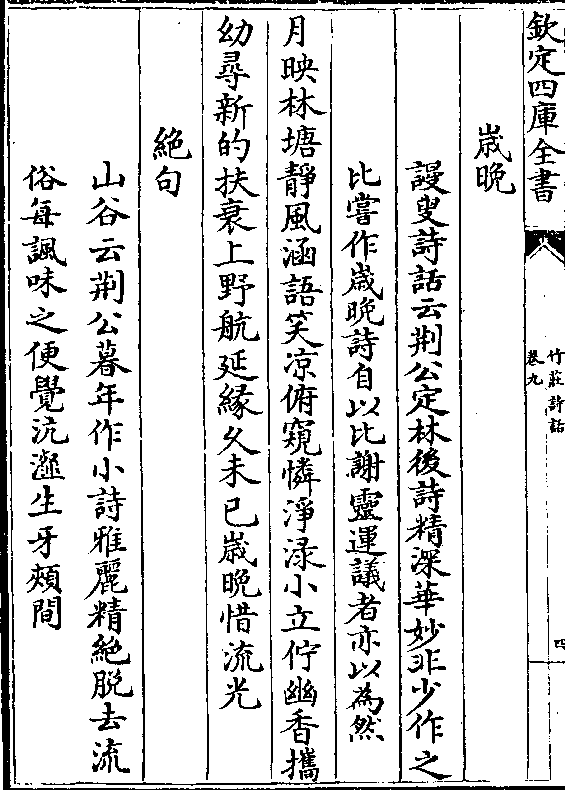 欽定四庫全書
竹莊詩話
卷九
四
歲晚
謾叟詩話云荆公定林後詩精深華妙非少作之
比嘗作歲晚詩自以比謝靈運議者亦以為然
月映林塘靜風涵語笑凉俯窺憐淨渌小立佇幽香攜
幼尋新的扶衰上野航延緣久未已歲晚惜流光
絕句
山谷云荆公暮年作小詩雅麗精絶脱去流
俗每諷味之便覺沆瀣生牙頰間